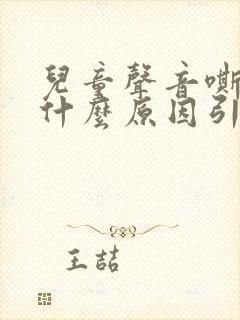 兒童聲音嘶
什麼原因引
王喆